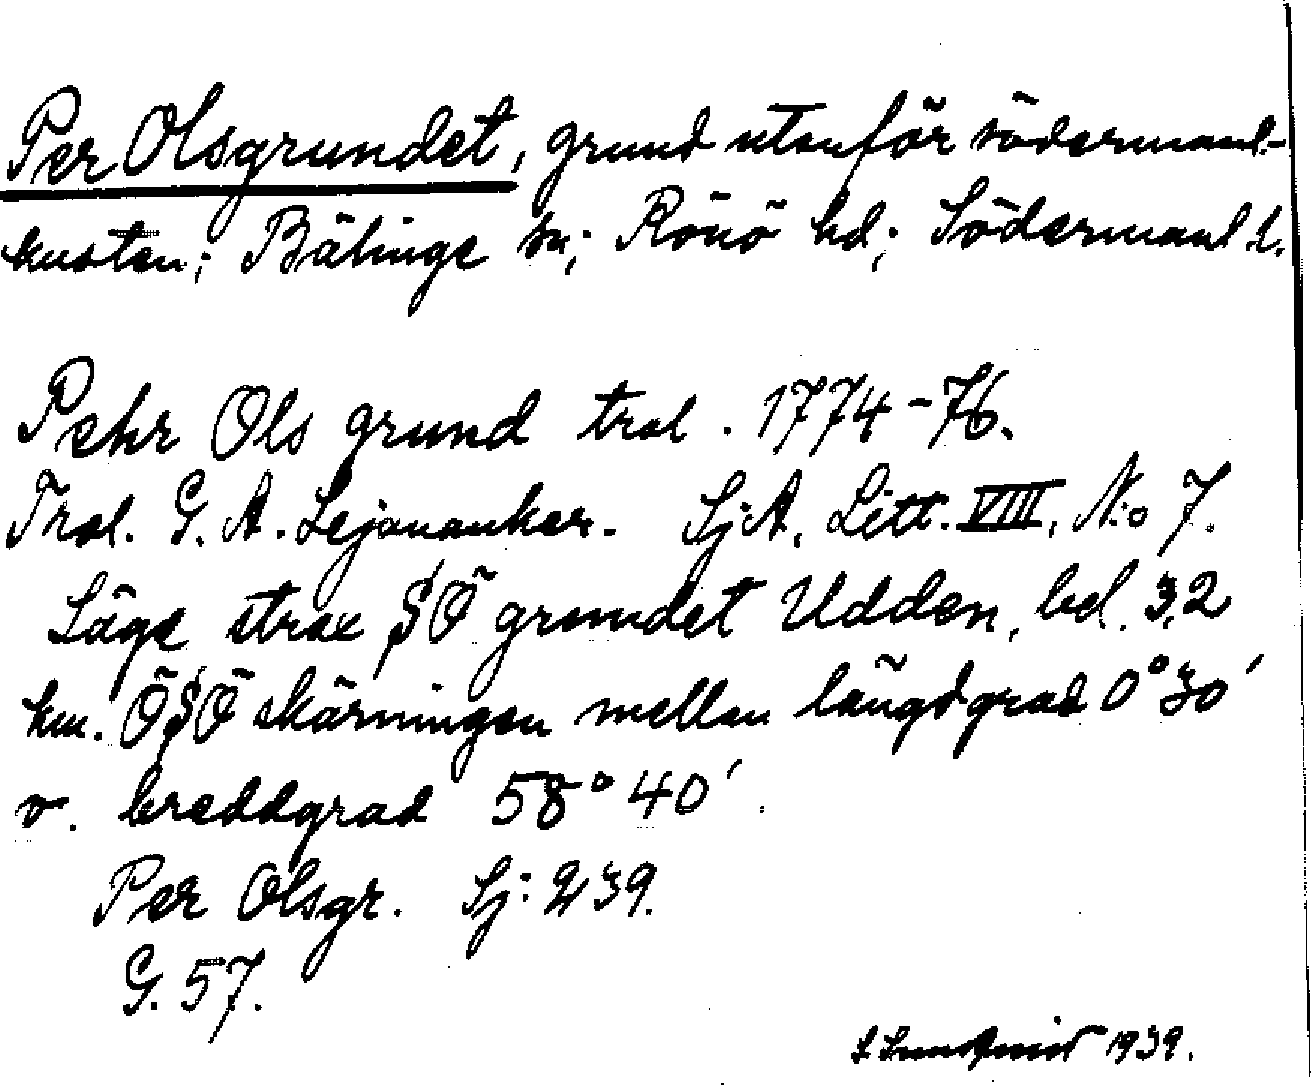 Per Olsgrundet, grund utanför södermanl-
kusten; Bälinge sn; Rönö hd; Södermanl l.
Pehr Ols grund tral. 1774-76.
Tral. G. A. Lejonanker. Sj:A. Litt. VIII, N:o 7.
Läge strax SÖ grundet Udden, bel. 3,2
km. ÖSÖ skärningen mellan längdgrad 0° 30'
o. breddgrad 58° 40'.
Per Olsgr. Sj: 239.
G. 57.
1939.